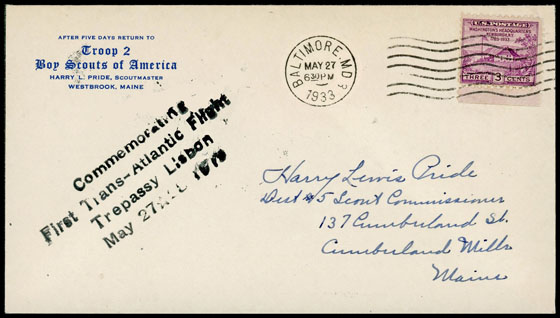 AFTER FIVE DAYS RETURN TO
Troop 2
Boy Scouts of America
HARRY L. PRIDE, SCOUTMASTER
WESTBROOK, MAINE
BALTIMORE, MD.
MAY 27
630PM
1933
U.S. POSTAGE
WASHINGTON'S HEADQUARTERS
NEWBURGH N.Y.
1783-1933
THREE 3 CENTS
Commemorating
First Trans-Atlantic Flight
Trepassy Lisbon
May 27 1919
Harry Lewis Pride
Dist #5 Scout Commissioner
137 Cumberland St.
Cumberland Mills
Maine